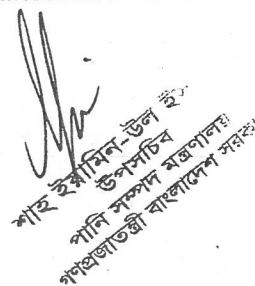 শাহ ইয়ামিন-উল
উপসচিব
পানি সম্পদ মন্ত্রণালয়
গণপ্রজাতন্ত্রী বাংলাদেশ সরকা